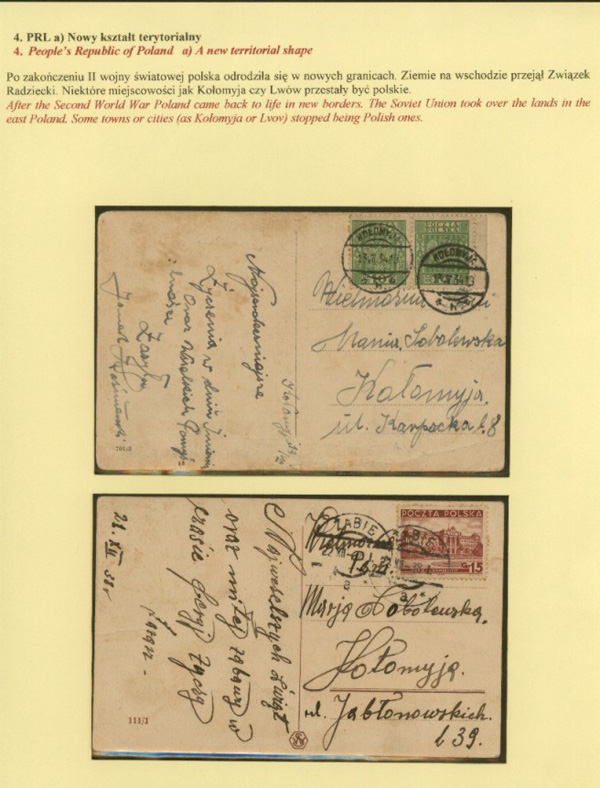 4. PRL a) Nowy kształt terytorialny
4. People's Republic of Poland   a) A new territorial shape
Po zakończeniu II wojny światowej polska odrodziła się w nowych granicach. Ziemie na wschodzie przejął Związek
Radziecki. Niektóre miejscowości jak Kołomyja czy Lwów przestały być polskie.
After the Second World War Poland came back to life in new borders. The Soviet Union took over the lands in the
east Poland. Some towns or cities (as Kołomyja or Lvov) stopped being Polish ones.
POCZTA
POLSKA
Mania Sobolewska
Kołomyja.
ul. Karpacka l. 8
Najserdeczniejsze
Życzenia w dniu Imienin
oraz
Zasyła
Janek
POCZTA POLSKA
15
ŻABIE
Marja Sobolewska.
Kołomyja.
ul. Jabłonowskich.
l 39.
Najweselszych Świąt
oraz miłej zabawy w
czasie
życzą
21. XII 38.
111/1